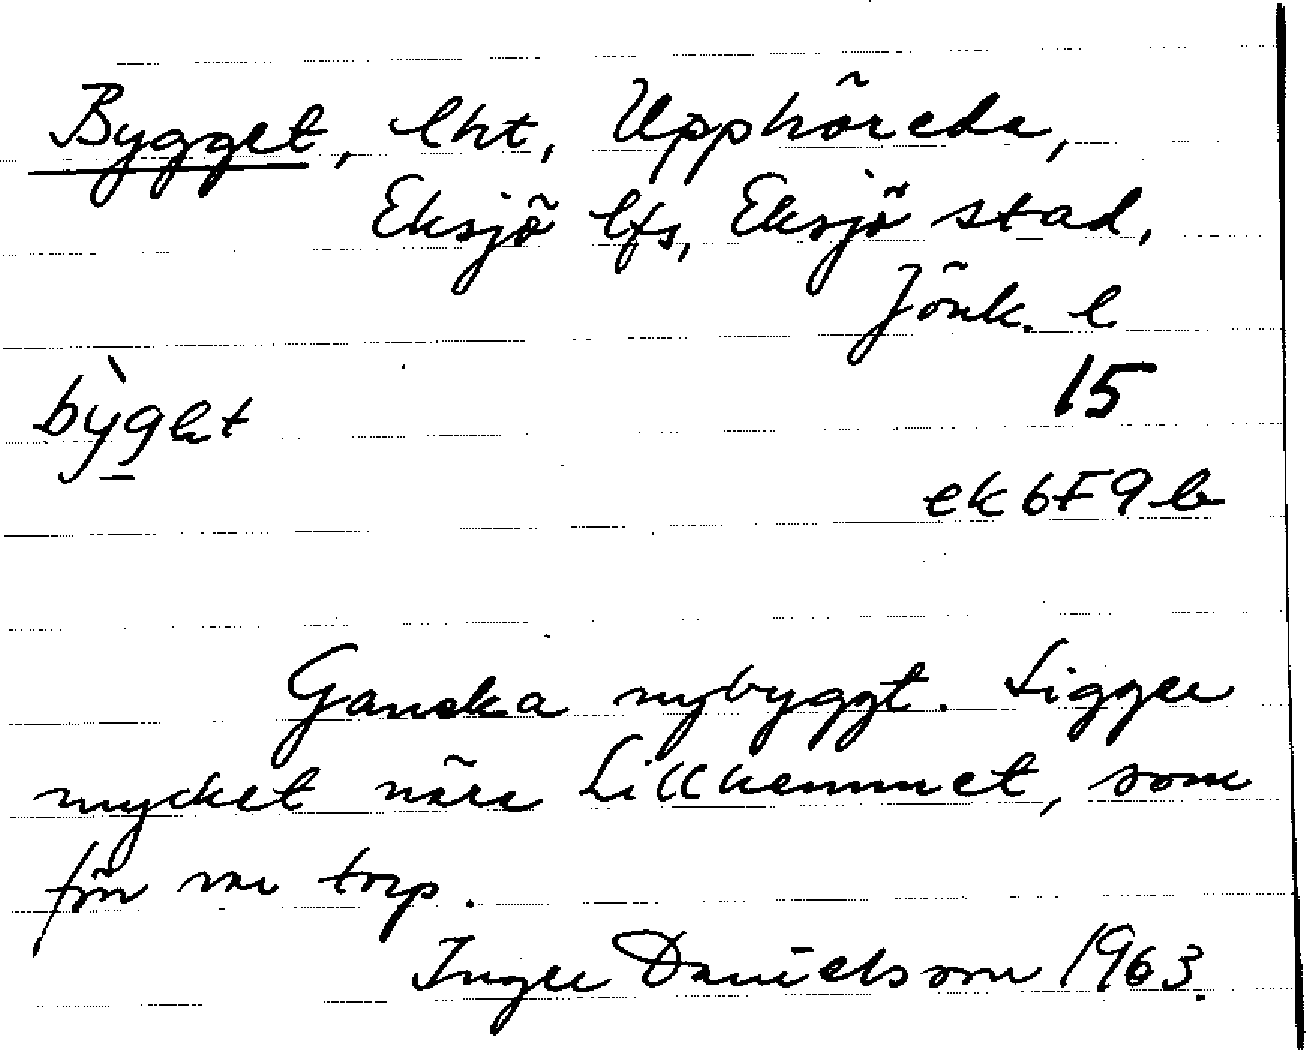 Bygget, lht, Upphöreda,
Eksjö lfs, Eksjö stad,
Jönk. l
bỳget
15
ek 6F9b
Ganska nybyggt. Ligger
mycket nära Lillhemmet, som
förr var torp.
Inger Danielsson 1963.